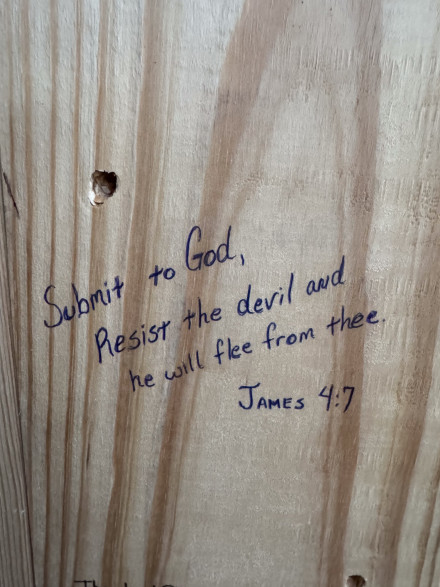 Submit to God,
Resist the devil and
he will flee from thee.
JAMES 4:7